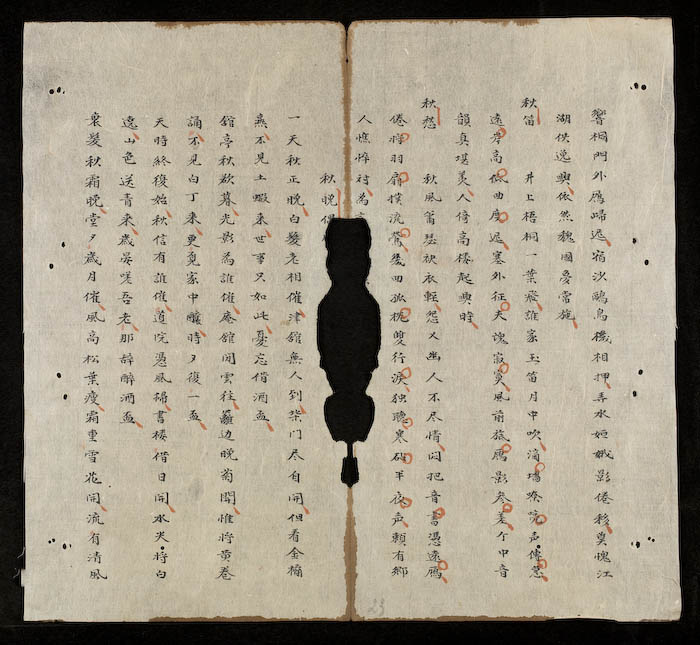 響桐門外雁歸遲宿沙鷗鳥機相押弄水姮娥影倦移莫愧江
湖供逸興依然魏國夢常施
秋笛 井上梧桐一葉飛誰家玉笛月中吹滴場嘹喨声傳急
遠岸高低曲度遲塞外征夫魂寂寞風前旅雁影參差个中音
韻真堪羨人倚高樓起興時
秋愁 秋風蕭瑟袂衣輕怨又幽人不尽情閑把音書憑遠雁
倦將羽扇撲流螢幾回孤枕雙行淚独聽寒砧半夜声頼有鄉
人憔悴対為
秋晚偶
一天秋正晚白髮老相催津舘無人到柴门尽自開但看金橘
燕不見土蝦来世事只如此憂忘借酒盃
舘亭秋欲暮光影為誰催庵舘閒雲往籬边晚菊開惟将黄卷
誦不見白丁来更覓家中釀時夕復一盃
天時終復始秋信有誰催道院憑風掃書楼借日開水光将白
遠山色送青来歲晏嗟吾老那辞醉酒盃
衰髮秋霜晚堂夕歲月催風高松葉瘦霜重雪花開流有清風